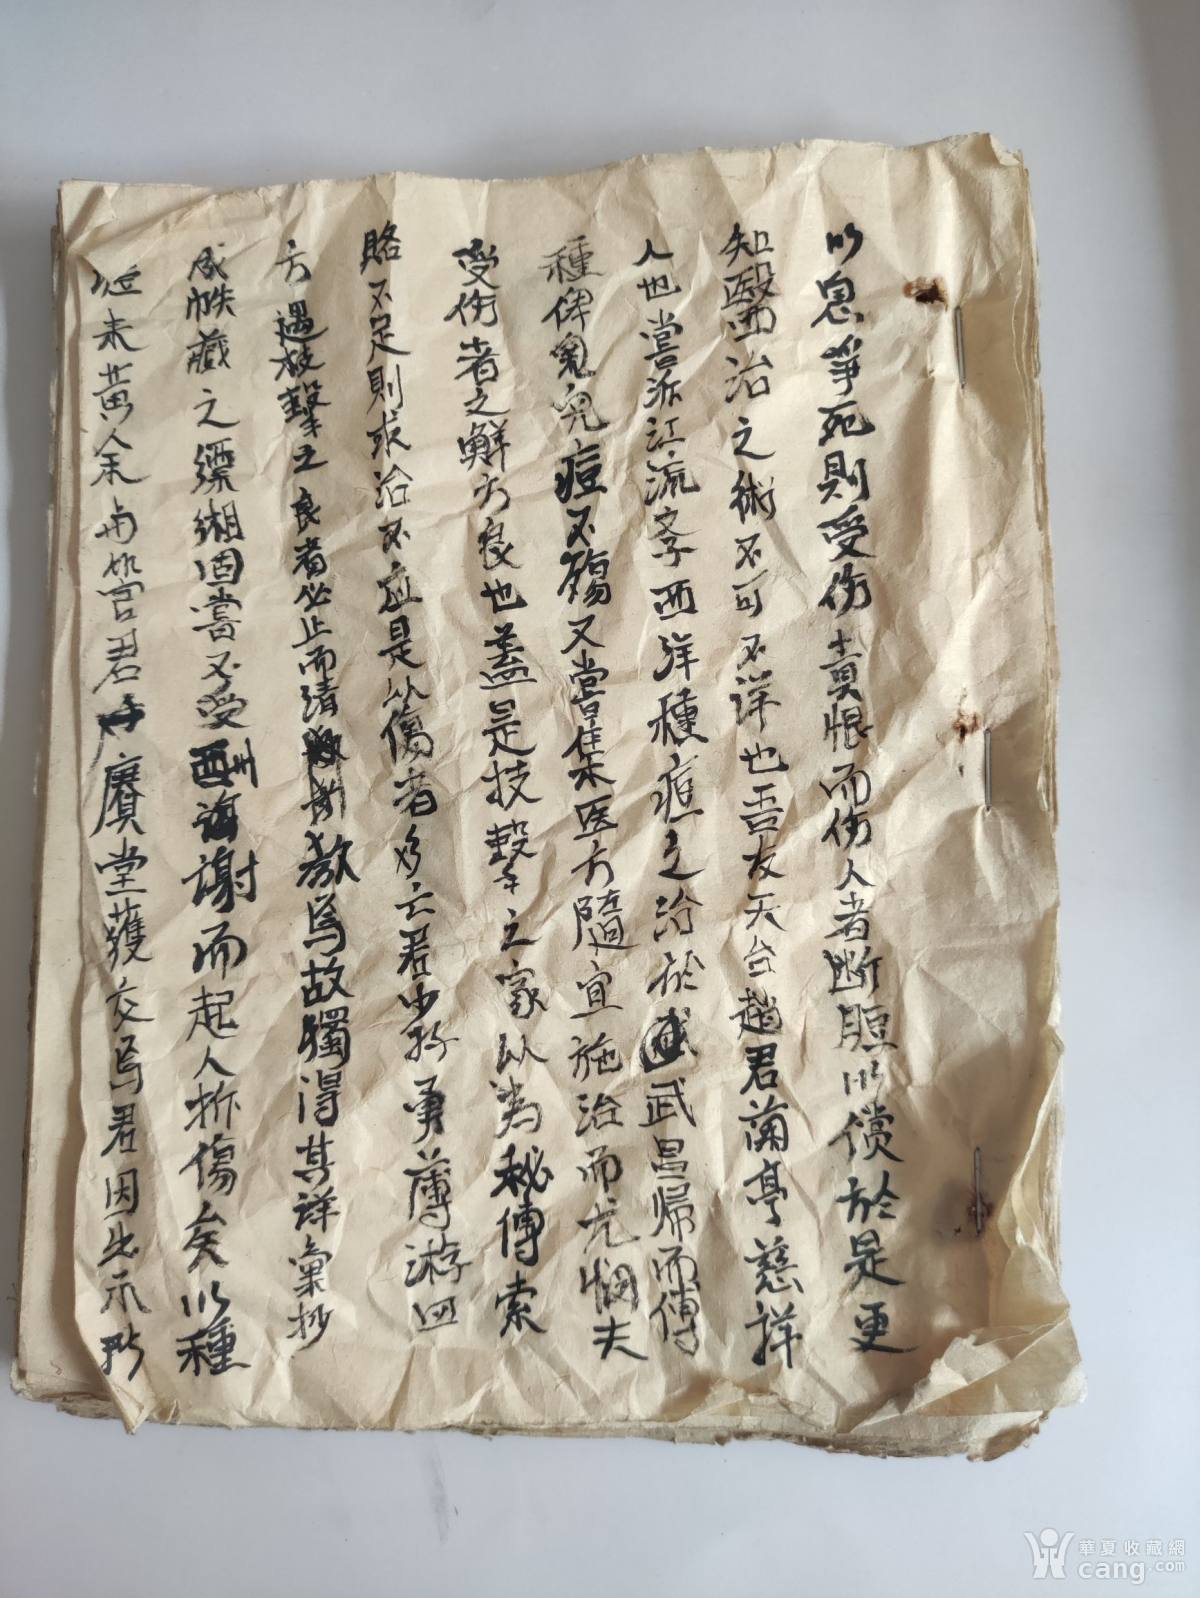 以息爭死則受伤賫恨而伤人者断脰以償於是更
知醫治之術不可不详也吾友天台趙君蘭亭慈祥
人也嘗泝江流学西洋種痘之治於武昌帰而傳
種俾兒痘不殤又嘗集医方隨宜施治而尤悯夫
受伤者之鮮方良也蓋是技擊之家以為秘傳索
賂不足則求治不应是以傷者多亡君少好勇薄游四
方遇技擊之良者必止而請教焉故獨得其详彙抄
成帙藏之縹缃固嘗不受酬謝而起人折傷矣以種
痘来黄余由管君賡堂獲交焉君因出示此
華夏收藏網
cang.com